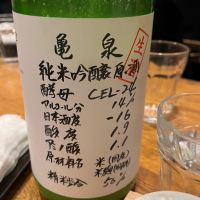 亀泉
生
純米吟醸原酒
酵母 CEL-24
アルコール分 14%
日本酒度 -16
酸度 1.9
アミノ酸 1.1
原材料名 米(国産)
米麹(国産米)
精米歩合 50%